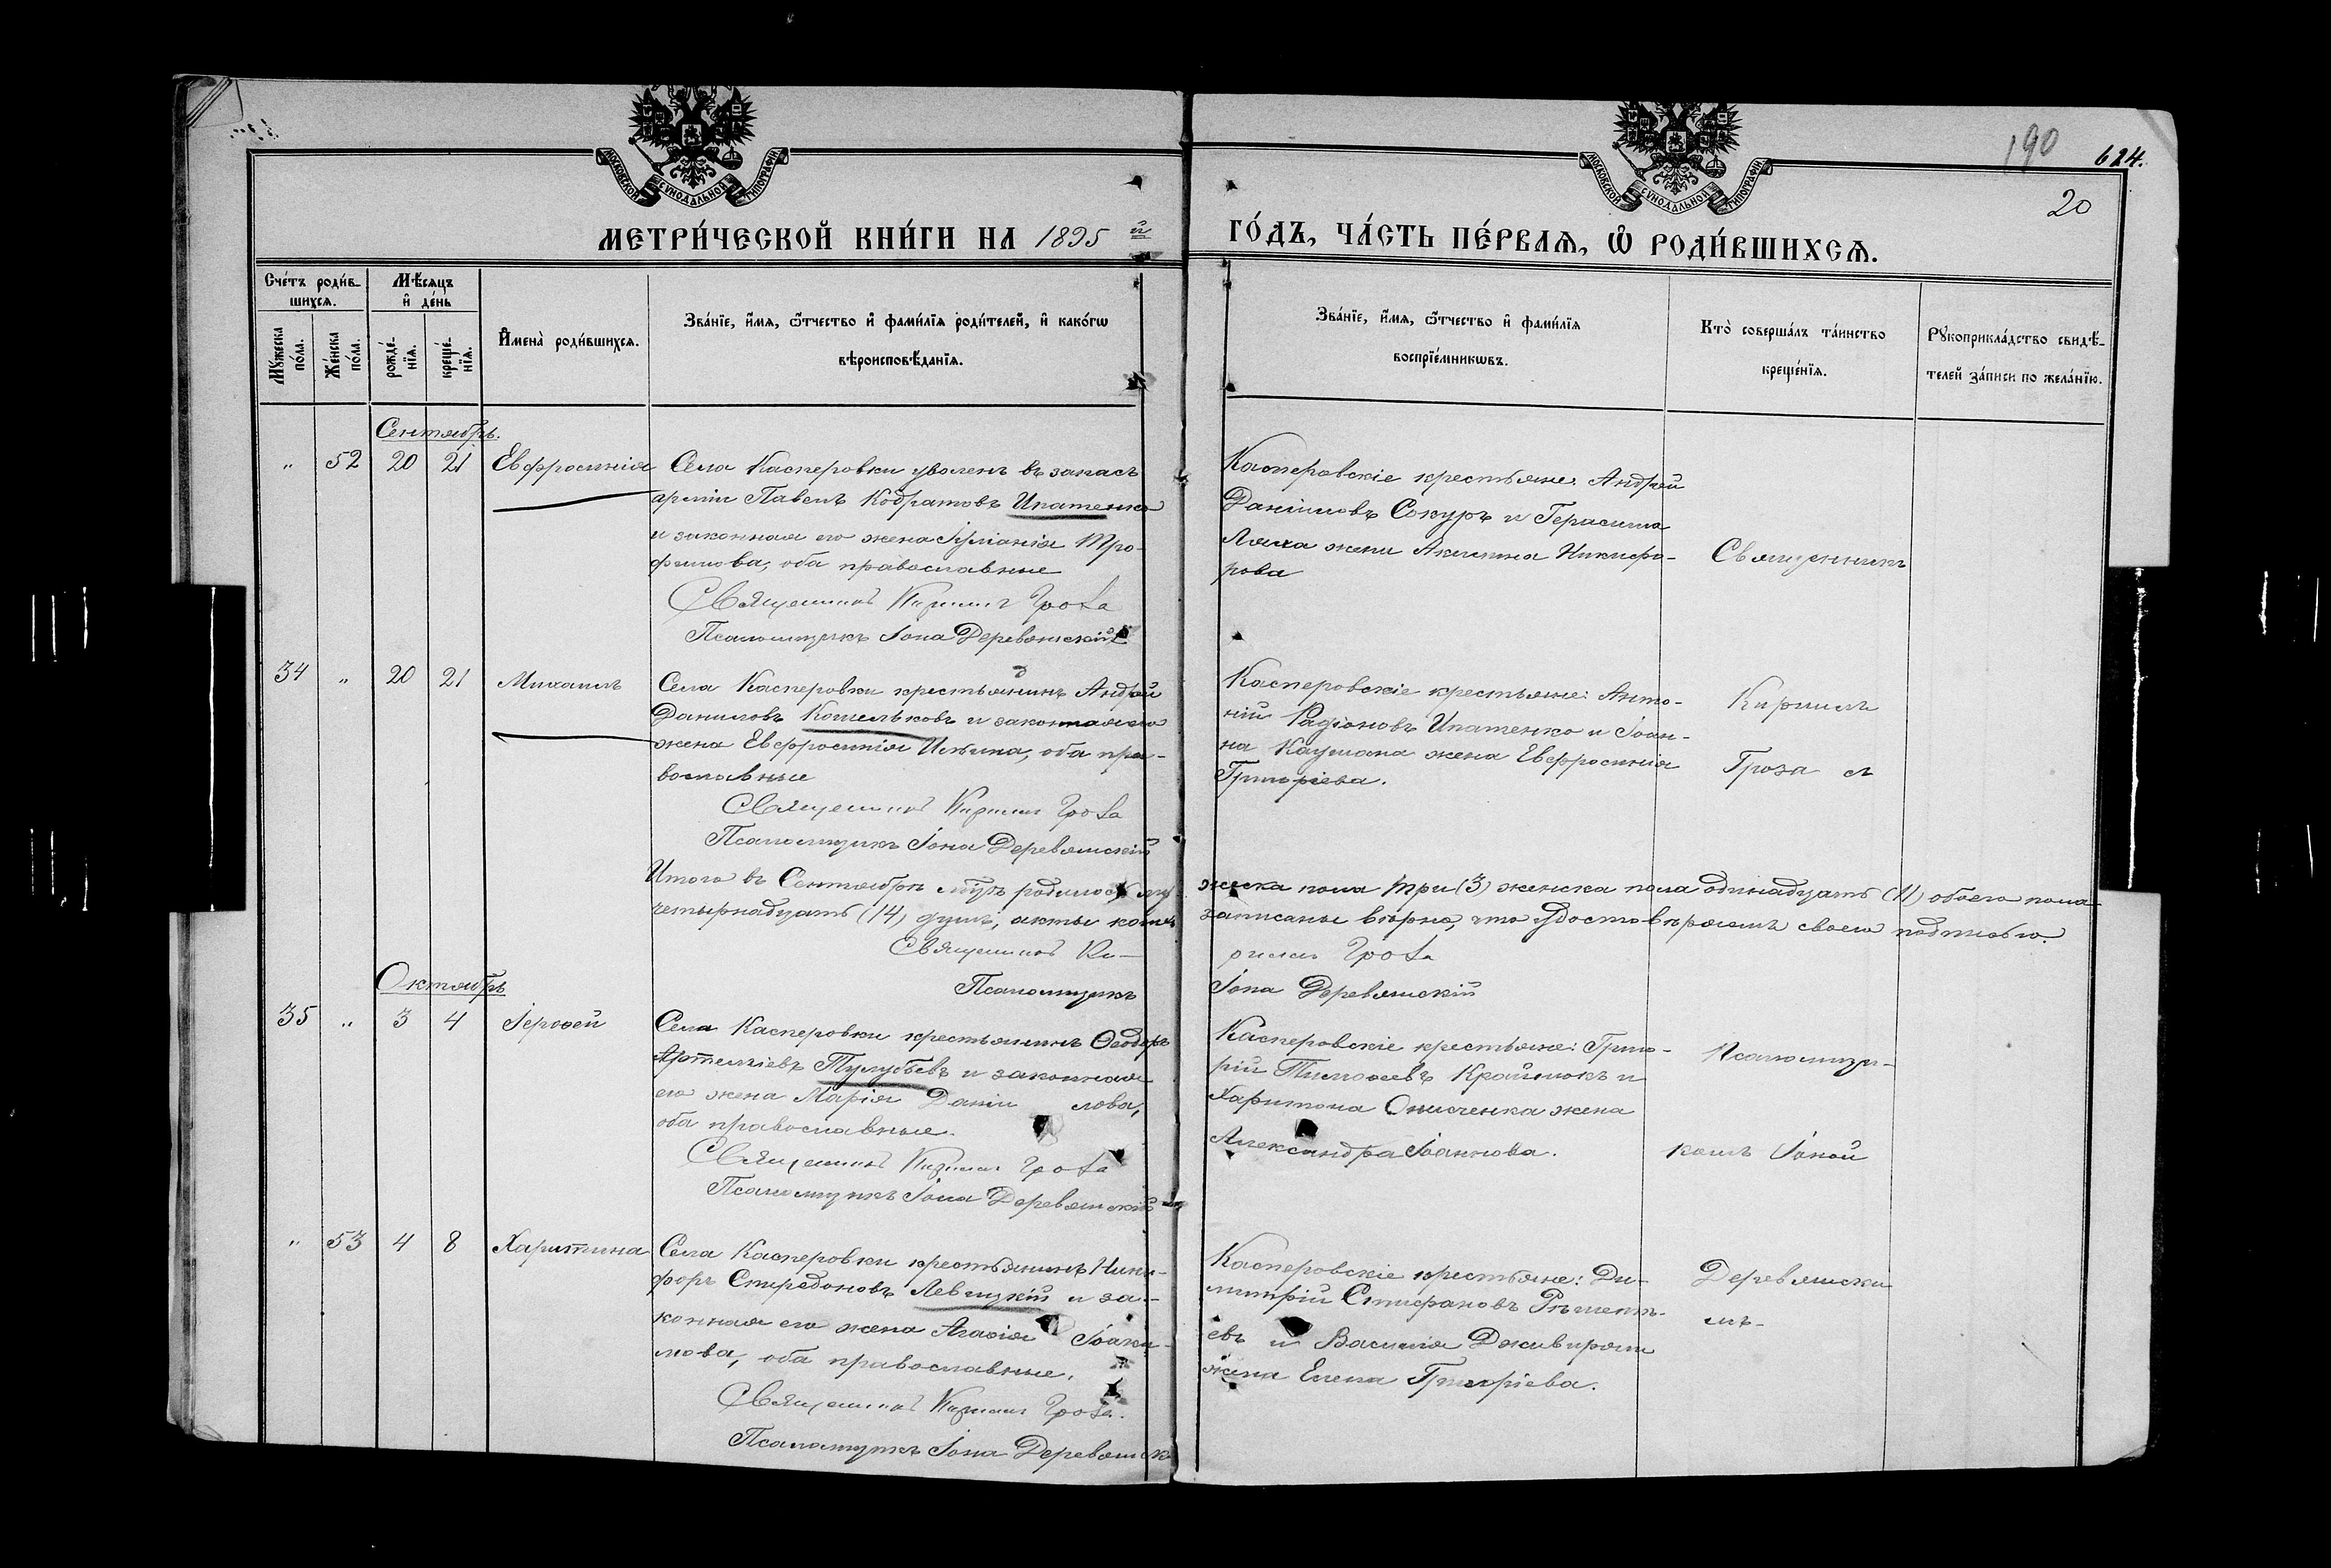 МОСКОВСКОЙ СѴНОДАЛЬНОЙ ТИПОГРАФІИ
МОСКОВСКОЙ СѴНОДАЛЬНОЙ ТИПОГРАФІИ
190 624.
20
МЕТРИ́ЧЕСКОЙ КНИ́ГИ НА 1895 й ГО́ДЪ, ЧА́СТЬ ПЕ́РВАЯ, Ѡ РОДИ́ВШИХСЯ.
Счетъ родив-
шихся.
Мужеска пола.
Женска пола.
Мѣсяцъ
и день
рожде-
нія.
креще-
нія.
Имена родившихся.
Званіе, имя, ѿчество и фамилія родителей, и какогѡ
вѣроисповѣданія.
Званіе, имя, ѿчество и фамилія
воспріемникѡвъ.
Кто совершалъ таинство
крещенія.
Рукоприкладство свидѣ-
телей записи по желанію.
Сентябрь.
" 52 20 21 Евфросинія
Села Касперовки уволенъ въ запасъ
арміи Павелъ Кодратовъ Ипатенко
и законная его жена Іуліанія Тро-
фимова, оба православные
Священникъ Кирилъ Гроза
Псаломщикъ Іона Деревянскій
Касперовскіе крестьяне: Андрей
Даніиловъ Сокуръ и Герасима
Ляха жена Акилина Никифо-
рова
Священникъ
34 " 20 21 Михаилъ
Села Касперовки крестьянинъ Андрей
Даниловъ Кошельковъ и законная его
жена Евфросинія Ильина, оба пра-
вославные
Священникъ Кирилъ Гроза
Псаломщикъ Іона Деревянскій
Касперовскіе крестьяне: Анто-
ній Радіоновъ Ипатенко и Іоан-
на Кацмана жена Евфросинія
Григоріева.
Кирилъ
Гроза съ
Итого въ Сентябрѣ м-цѣ родилось му-жеска пола три (3) женска пола одинадцать (11) обоего пола
четырнадцать (14) душъ, акты коихъ записаны вѣрно, что удостовѣряемъ своею подписью.
Священникъ Ки-рилъ Гроза
Псаломщикъ Іона Деревянскій
Октябрь
35 " 3 4 Іерофей
Села Касперовки крестьянинъ Ѳеодоръ
Артеміевъ Тулубьевъ и законная
его жена Марія Даніилова,
оба православные.
Священникъ Кирилъ Гроза
Псаломщикъ Іона Деревянскій
Касперовскіе крестьяне: Григо-
рій Тимоѳеевъ Крайнюкъ и
Харитона Онисченка жена
Александра Іоаннова.
Псаломщи-
комъ Іоной
" 53 4 8 Харитина
Села Касперовки крестьянинъ Ники-
форъ Спиридоновъ Левицкій и за-
конная его жена Агаѳія Іоаки-
мова, оба православные.
Священникъ Кирилъ Гроза.
Псаломщикъ Іона Деревянск
Касперовскіе крестьяне: Ди-
митрій Стефановъ
евъ и Василія
жена Елена Григоріева.
Деревянски
мъ-